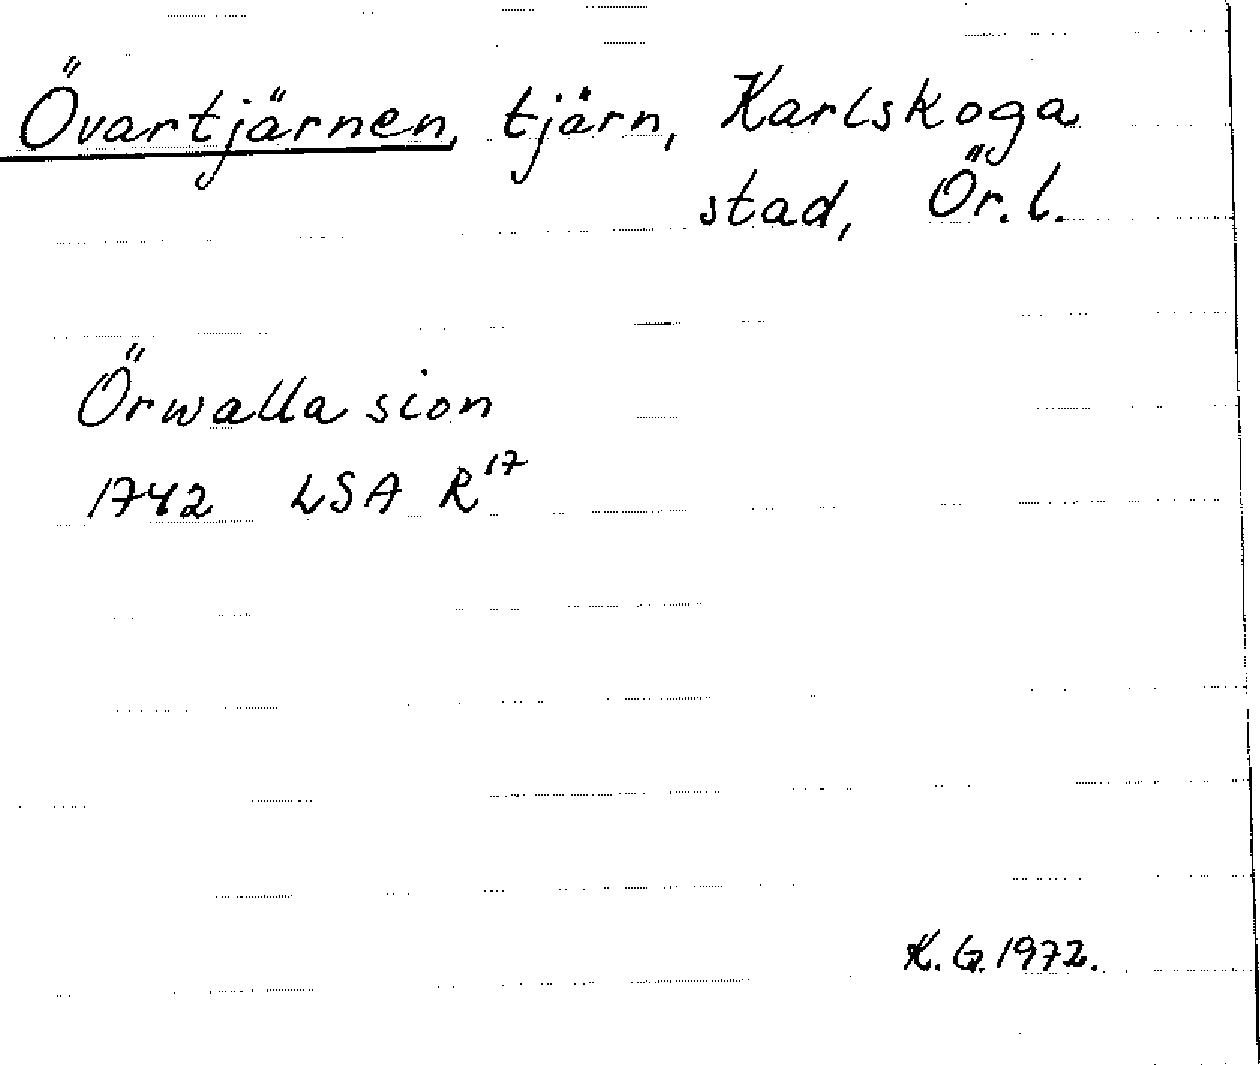 Övartjärnen, tjärn, Karlskoga
stad, Ör. l.
Örwalla sion
1742 LSA R¹⁷
K. G. 1972.